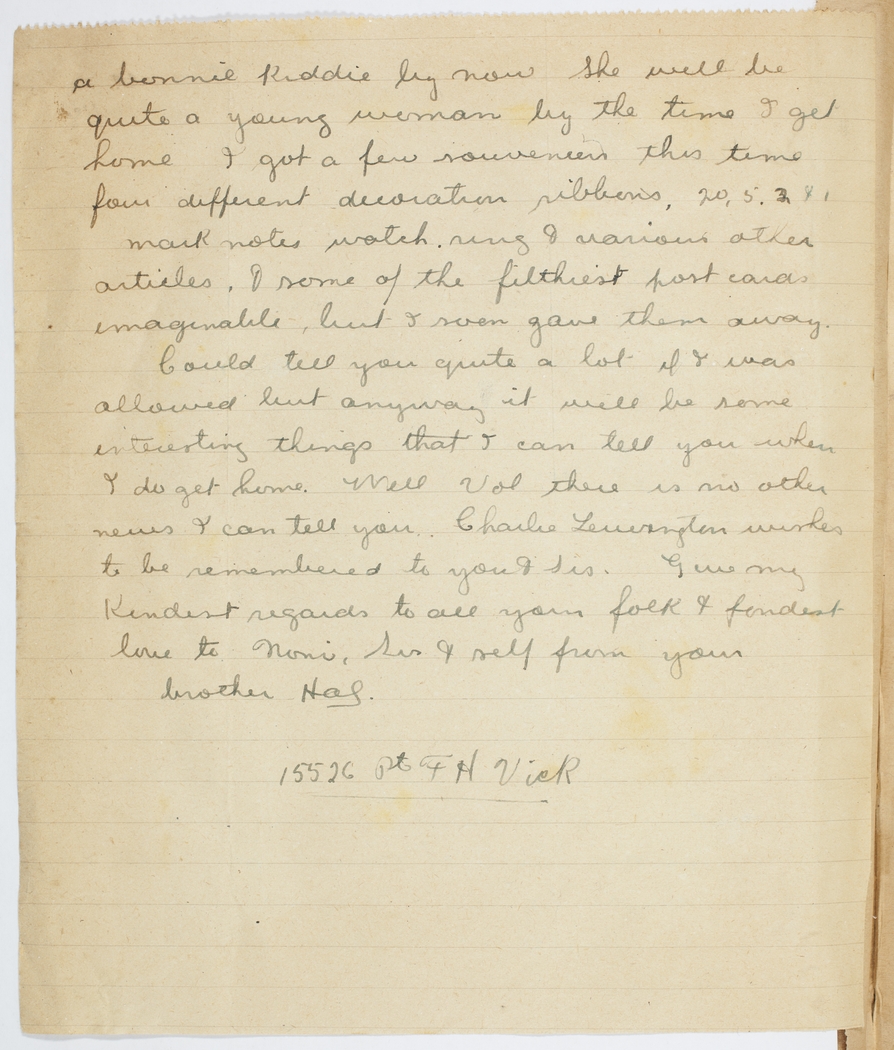 a bonnie Kiddie by now She will be
quite a young woman by the time I get
home I got a few souveneirs this time
four different decoration ribbons, 20, 5. 2 & 1
mark notes watch. ring & various other
articles, & some of the filthiest post cards
imaginable, but I soon gave them away.
Could tell you quite a lot if I was
allowed but anyway it will be some
interesting things that I can tell you when
I do get home. Well Vol there is no other
news I can tell you. Charlie Lewington wishes
to be remembered to you & Sis. Give my
Kindest regards to all your folk & fondest
love to Noni, Sis & self from your
brother Hal.
15526 Pt F H Vick